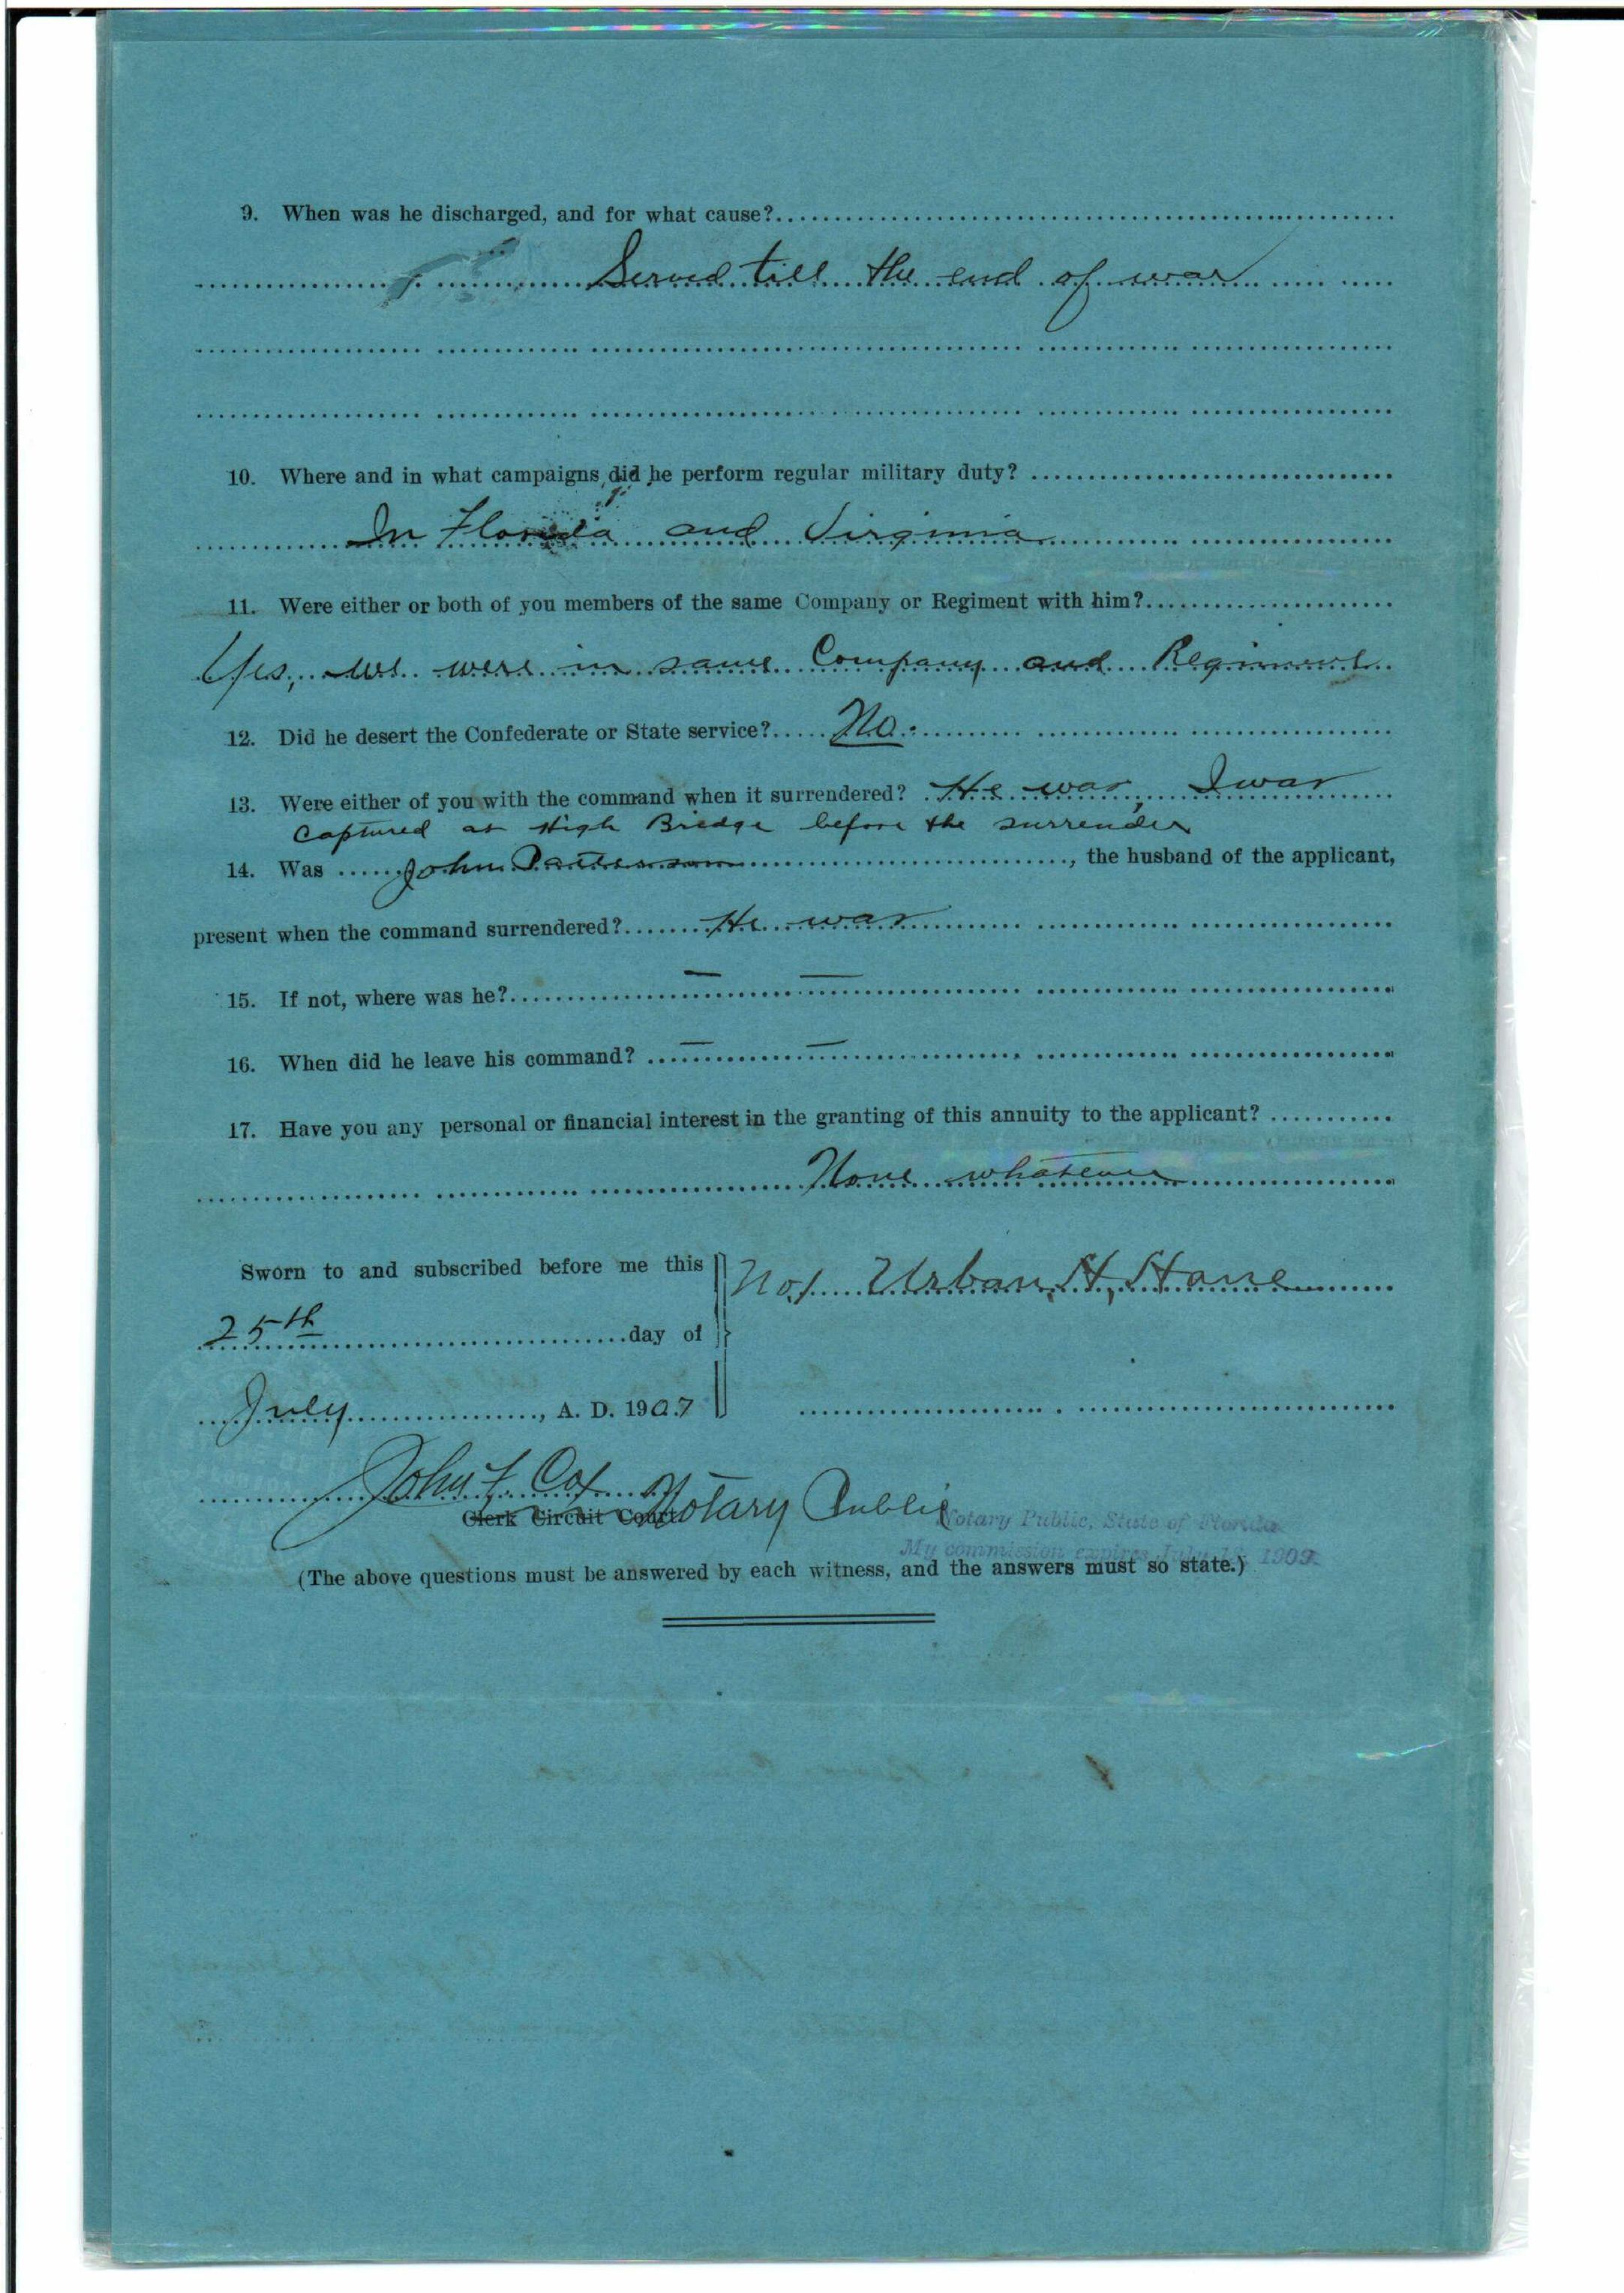 9. When was he discharged, and for what cause?
Served till the end of war
10. Where and in what campaigns did he perform regular military duty?
In Florida and Virginia
11. Were either or both of you members of the same Company or Regiment with him?
Yes, we were in same Company and Regiment
12. Did he desert the Confederate or State service? No.
13. Were either of you with the command when it surrendered? He was, I was
captured at High Bridge before the surrender
14. Was John Patterson, the husband of the applicant,
present when the command surrendered? He was
15. If not, where was he? — —
16. When did he leave his command? — —
17. Have you any personal or financial interest in the granting of this annuity to the applicant?
None whatever
Sworn to and subscribed before me this
No 1 Urban, H, Hane
25th day of
July, A. D. 1907
John F. Cox
Clerk Circuit Court. Notary Public
Notary Public, State of Florida
My commission expires July 1909
(The above questions must be answered by each witness, and the answers must so state.)